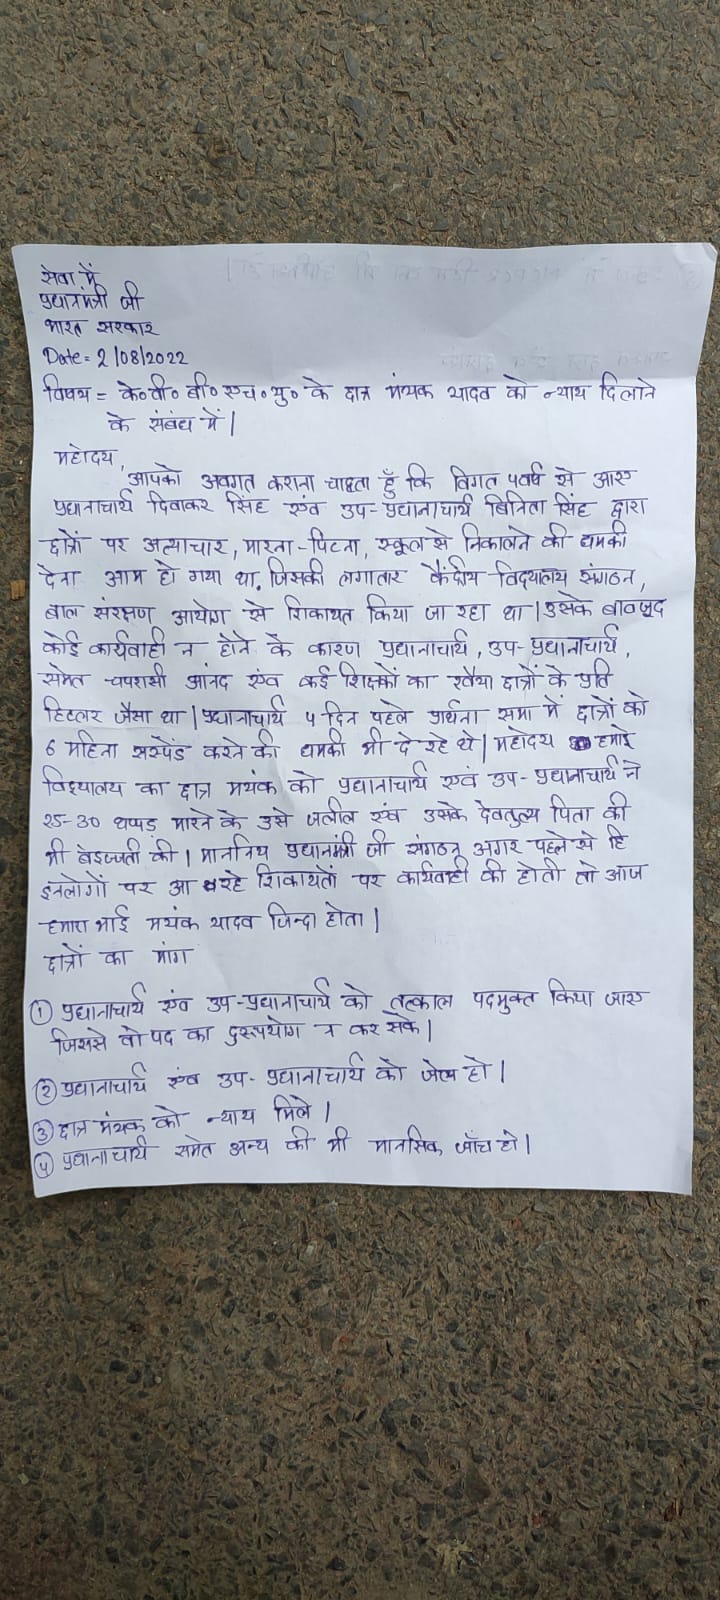 सेवा में
प्रधानमंत्री जी
भारत सरकार
Date = 2/08/2022
विषय = के० वी० बी० एच० यु० के छात्र मंयक यादव को न्याय दिलाने
के संबंध में|
महोदय,
आपको अवगत कराना चाहता हुँ कि विगत 4वर्ष से आए
प्रधानाचार्य दिवाकर सिंह एंव उप-प्रधानाचार्य बिनिता सिंह द्वारा
छात्रों पर अत्याचार, मारना-पिटना, स्कूल से निकालने की धमकी
देना आम हो गया था, जिसकी लगातार केंद्रीय-विदयालय संगठन,
बाल संरक्षण आयोग से शिकायत किया जा रहा था| उसके बावजूद
कोई कार्यवाही न होने के कारण प्रधानाचार्य, उप-प्रधानाचार्य,
समेत चपरासी आंनद एंव कई शिक्षकों का रवैया छात्रों के प्रति
हिटलर जैसा था| प्रधानाचार्य 4 दिन पहले प्रार्थना सभा में छात्रों को
6 महिना सस्पेंड करने की धमकी भी दे रहे थे| महोदय हमारे
विद्यालय का छात्र मयंक को प्रधानाचार्य एवं उप-प्रधानाचार्य ने
25-30 थप्पड़ मारने के उसे जलील एंव उसके देवतुल्य पिता की
भी बेइज्जती की| माननिय प्रधानमंत्री जी संगठन अगर पहले से हि
इनलोगों पर आ रहे शिकायतों पर कार्यवाही की होती तो आज
हमारा भाई मयंक यादव जिन्दा होता|
छात्रों का मांग
① प्रधानाचार्य एंव उप-प्रधानाचार्य को तत्काल पदमुक्त किया जाए
जिससे वो पद का दुरूपयोग न कर सके|
② प्रधानाचार्य एंव उप-प्रधानाचार्य को जेल हो|
③ छात्र मंयक को न्याय मिले|
④ प्रधानाचार्य समेत अन्य की भी मानसिक जाँच हो|